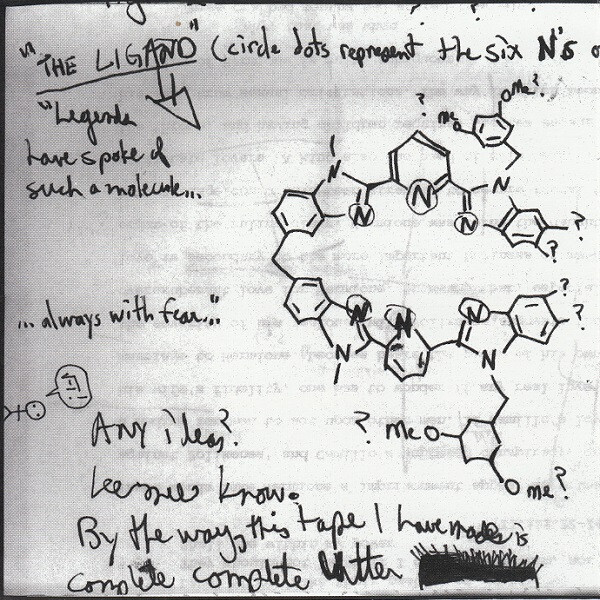 "THE LIGAND" (circle dots represent the six N's o
"Legends
have spoke of
such a molecule...
? ome?
meO
N
N
N
N
N
?
?
...always with fear..."
N
N
N
N
N
?
?
Any ideas?
? meO
O me?
Leemee know.
By the way, this tape I have made is
complete complete utter